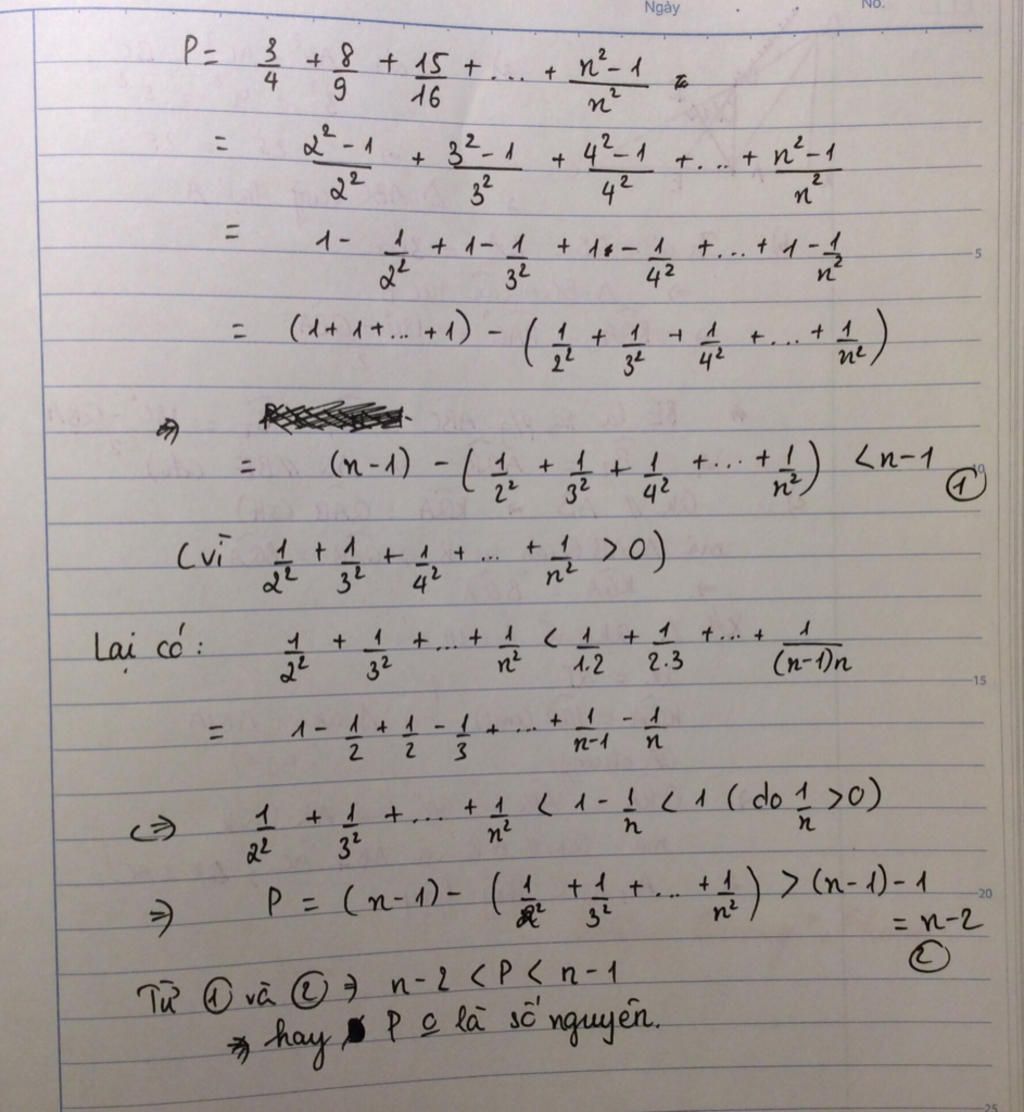 Ngày No.
P = 3/4 + 8/9 + 15/16 + ... + (n² - 1)/n² =
= (2² - 1)/2² + (3² - 1)/3² + (4² - 1)/4² + ... + (n² - 1)/n²
= 1 - 1/2² + 1 - 1/3² + 1 - 1/4² + ... + 1 - 1/n²
5
= (1 + 1 + ... + 1) - (1/2² + 1/3² + 1/4² + ... + 1/n²)
⇒
= (n-1) - (1/2² + 1/3² + 1/4² + ... + 1/n²) < n-1 ①
10
(vì 1/2² + 1/3² + 1/4² + ... + 1/n² > 0)
Lại có: 1/2² + 1/3² + ... + 1/n² < 1/1.2 + 1/2.3 + ... + 1/(n-1)n
15
= 1 - 1/2 + 1/2 - 1/3 + ... + 1/n-1 - 1/n
<=> 1/2² + 1/3² + ... + 1/n² < 1 - 1/n < 1 (do 1/n > 0)
⇒ P = (n-1) - (1/2² + 1/3² + ... + 1/n²) > (n-1) - 1
20
= n-2
②
Từ ① và ② ⇒ n-2 < P < n-1
⇒ hay P o là số nguyên.
25